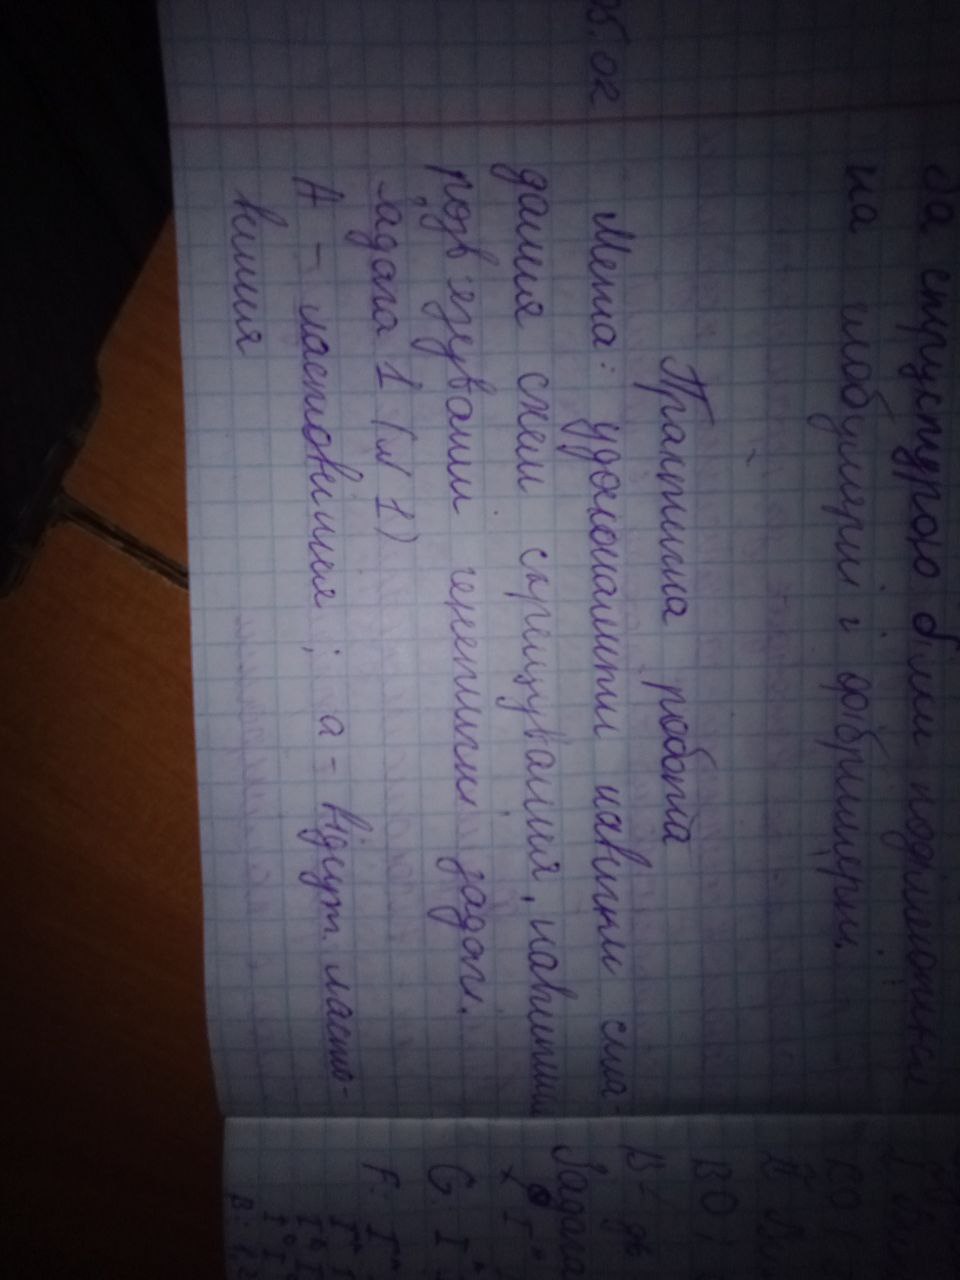 За структурою білки поділяються
на глобулярні і фібрилярні.
Практична робота
05.02 Мета: удосконалити навички скла-
дання схем схрещування, навчитися
розв'язувати генетичні задачі.
Задача 1 (№ 1)
А – ластовиння ; а – відсут. ласто-
виння
ВО
В –
Задача
P I
G: I
F: I